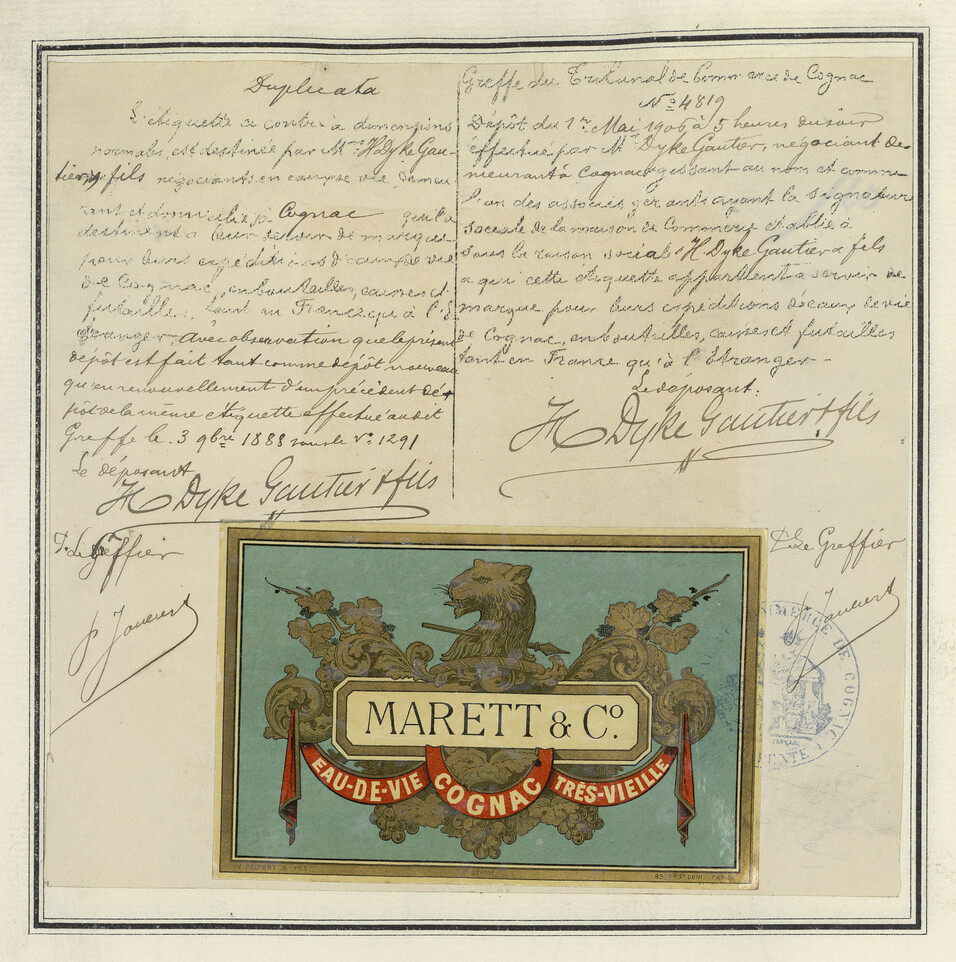 Duplicata
L'étiquette ci contre à dimensions
normales, est destinée par Mrs H Dyke Gau-
tier & fils négociants en eaux de vie demeu
rant et domiciliés à Cognac qui la
destinent à leur servir de marque
pour leurs expéditions d'eaux de vie
de Cognac, en bouteilles, caisses et
futailles, tant en France qu'à l'E
tranger. Avec observation que le présent
dépôt est fait tant comme dépôt nouveau
qu'en renouvellement d'un précédent dé-
pôt de la même étiquette effectué audit
Greffe le 3 9bre 1888 sous le No 1291
Le déposant
H Dyke Gautier & fils
P. Le Greffier
Greffe du Tribunal de Commerce de Cognac
No 4819
Dépôt du 1er Mai 1906 à 5 heures du soir
effectué par Mr Dyke Gautier, négociant de-
meurant à Cognac agissant au nom et comme
l'un des associés gérants ayant la signature
sociale de la maison de Commerce établie à
sous la raison sociale H Dyke Gautier & fils
a qui cette étiquette appartient à servir de
marque pour leurs expéditions d'eaux de vie
de Cognac, en bouteilles, caisses et futailles
tant en France qu'à l'Etranger.
Le déposant:
H Dyke Gautier & fils
P. Le Greffier
MARETT & Co.
EAU-DE-VIE COGNAC TRÈS-VIEILLE
DÉPOSÉ
COMMERCE DE COGNAC